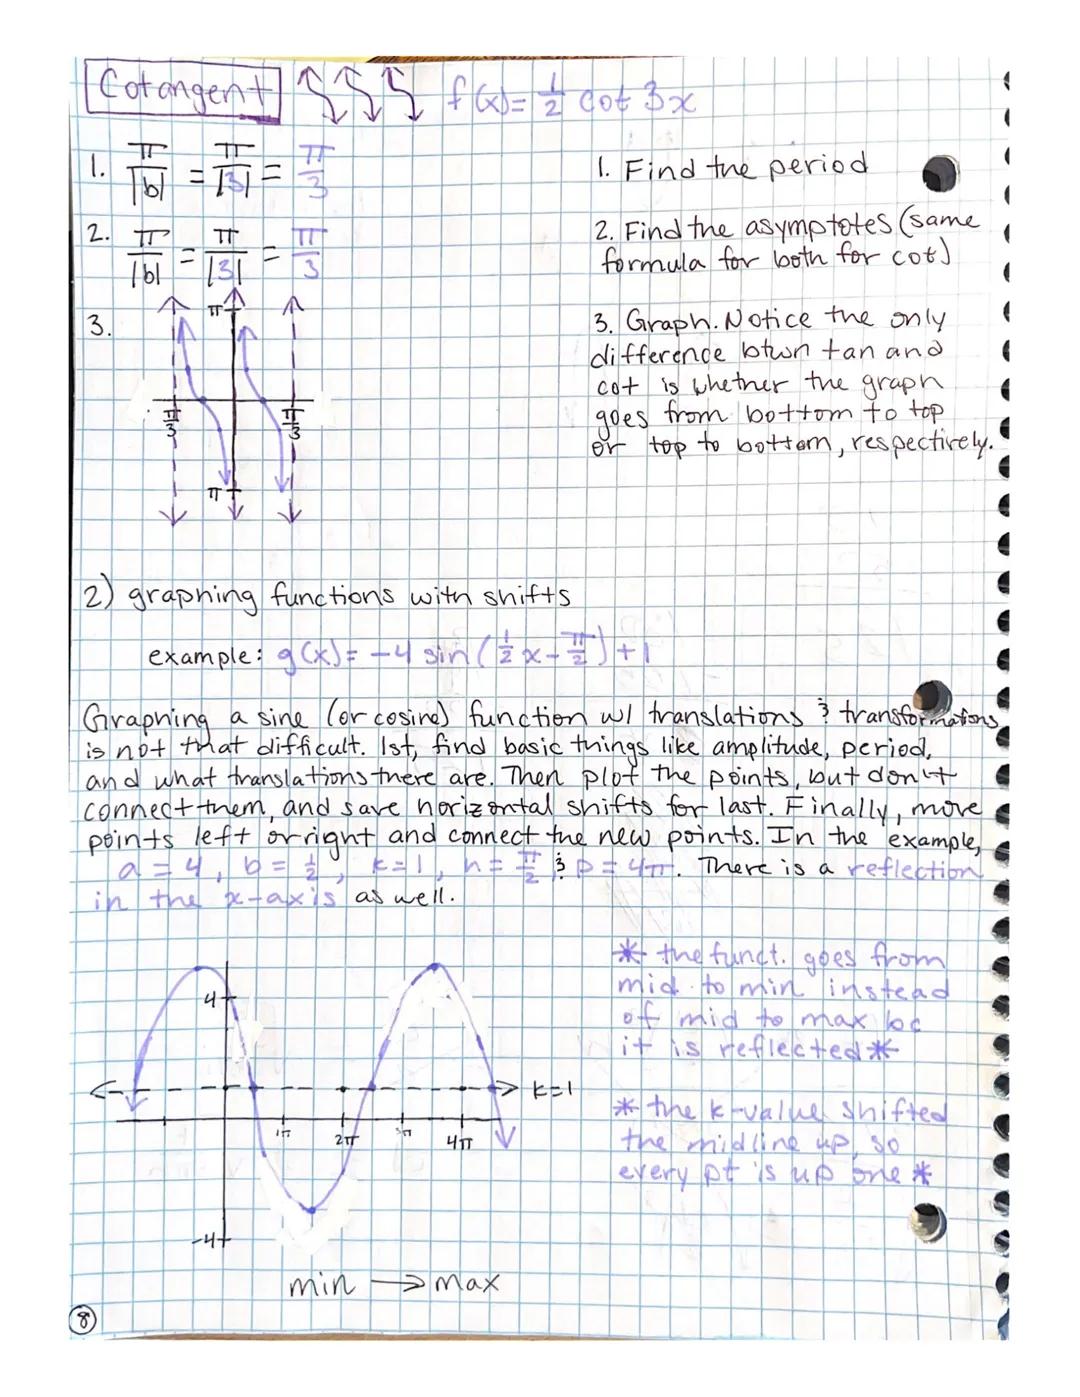 Cotangent f(x)= 1/2 cot 3x
1. π/|b| = π/|3| = π/3
1. Find the period
2. π/|b| = π/|3| = π/3
2. Find the asymptotes (same
formula for both for cot)
3.
π
π/3
π/3
π
3. Graph. Notice the only
difference btwn tan and
cot is whether the graph
goes from bottom to top
or top to bottom, respectively.
2) graphing functions with shifts
example: g(x)= -4 sin (1/2 x - π/2) +1
Graphing a sine (or cosine) function w/ translations & transformations
is not that difficult. 1st, find basic things like amplitude, period,
and what translations there are. Then plot the points, but don't
connect them, and save horizontal shifts for last. Finally, move
points left or right and connect the new points. In the example,
a = 4, b = 1/2, k=1, h= π/2 & p = 4π. There is a reflection
in the x-axis as well.
4
k=1
1π
2π
3π
4π
-4
min → max
* the funct. goes from
mid to min instead
of mid to max bc
it is reflected *
* the k-value shifted
the midline up, so
every pt is up one *
8